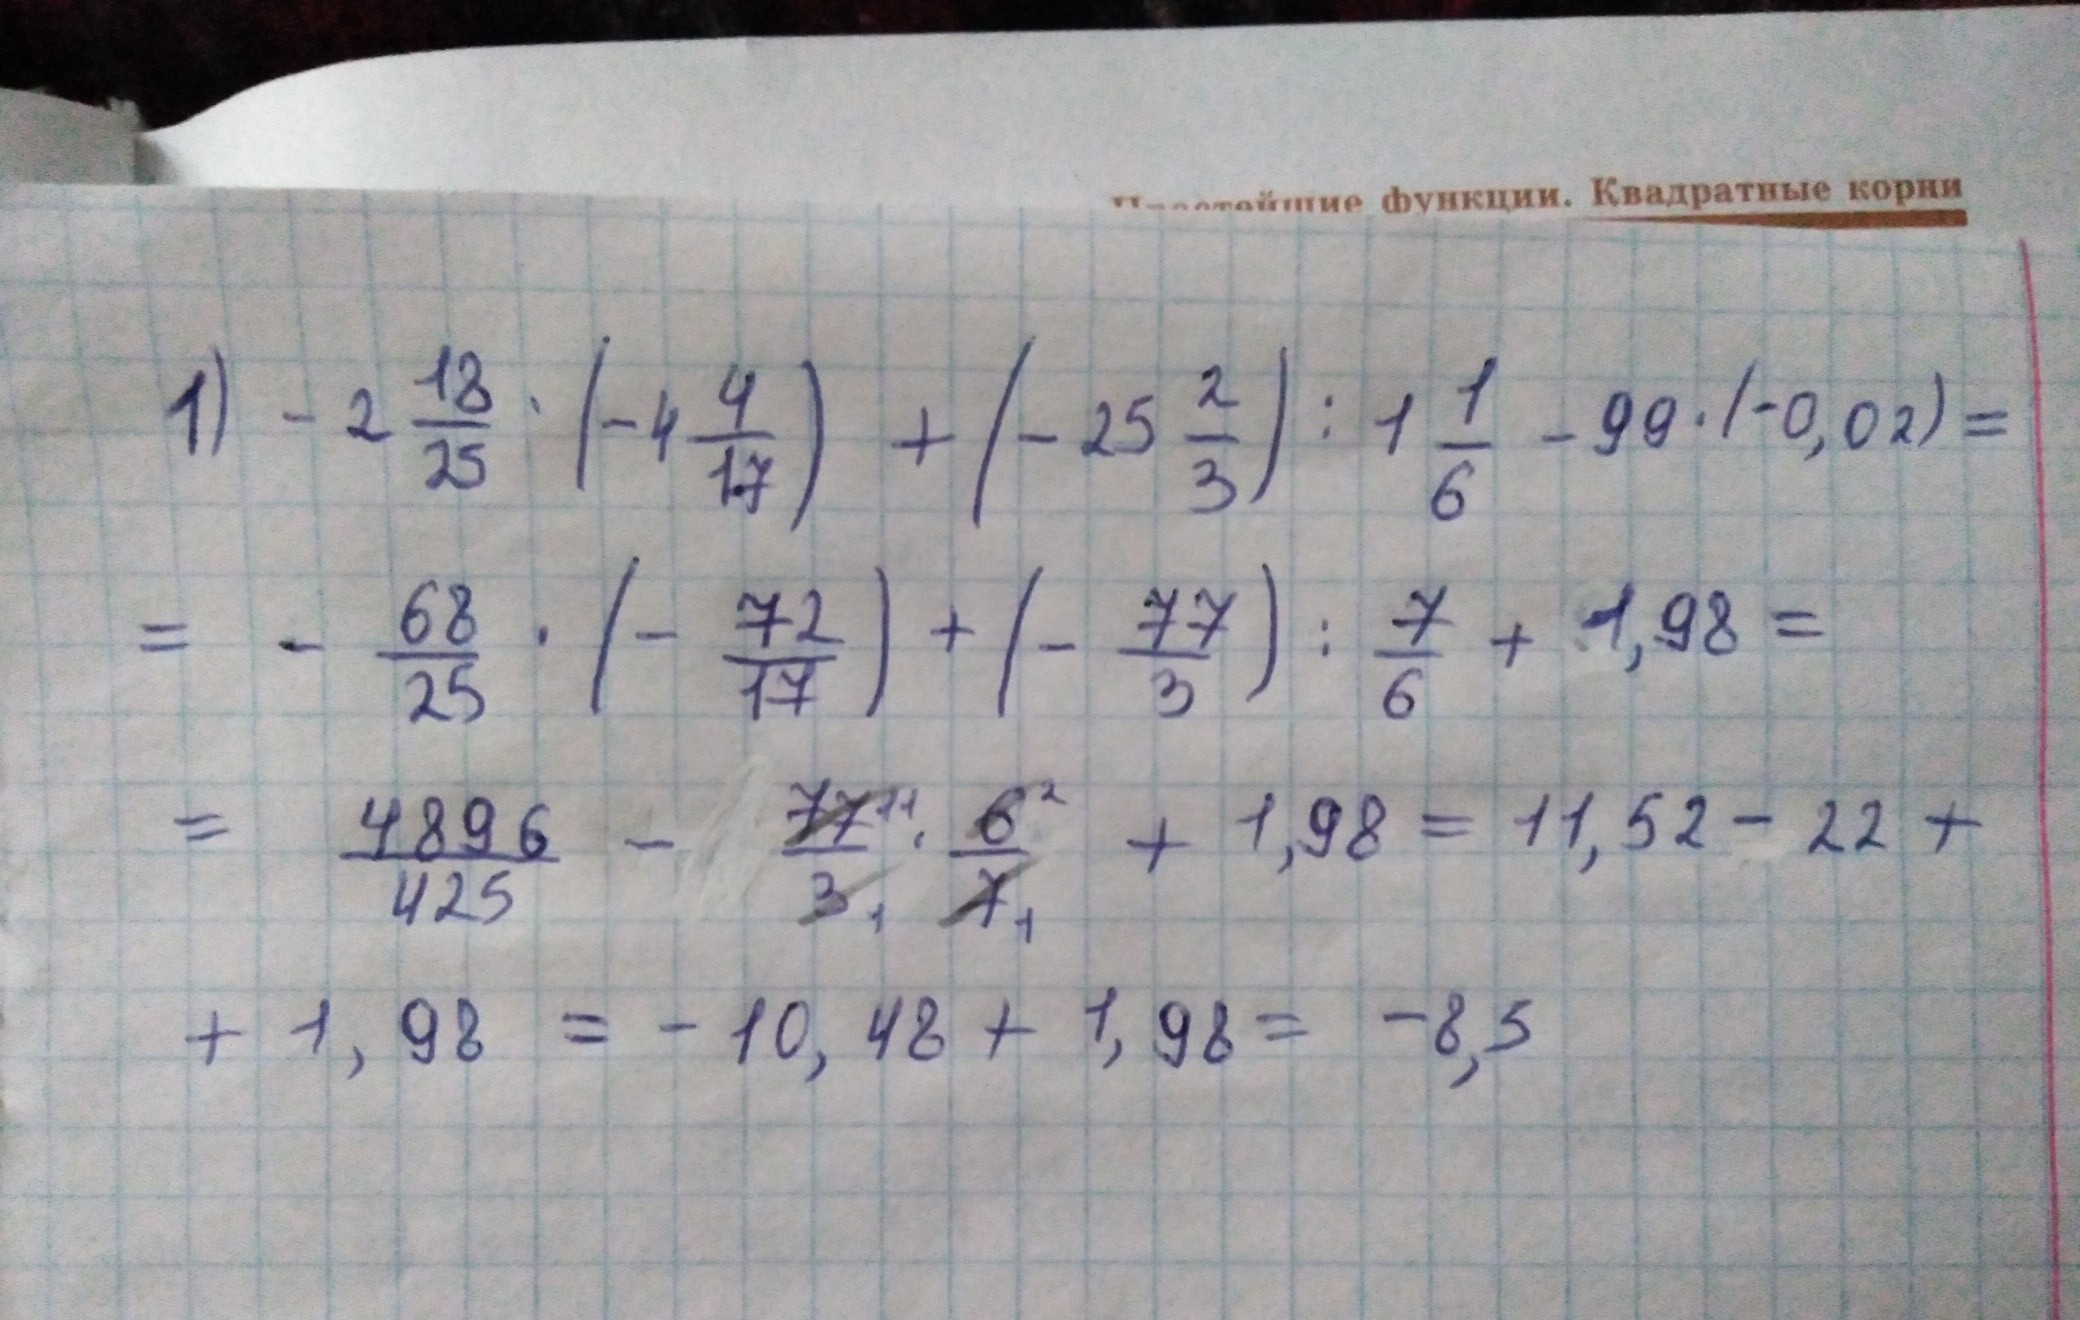 Простейшие функции. Квадратные корни
1) - 2 18/25 · (- 4 4/17) + (- 25 2/3) : 1 1/6 - 99 · (-0,02) =
= - 68/25 · (- 72/17) + (- 77/3) : 7/6 + 1,98 =
= 4896/425 - 77 11/3 1 · 6 2/7 1 + 1,98 = 11,52 - 22 +
+ 1,98 = - 10,48 + 1,98 = -8,5